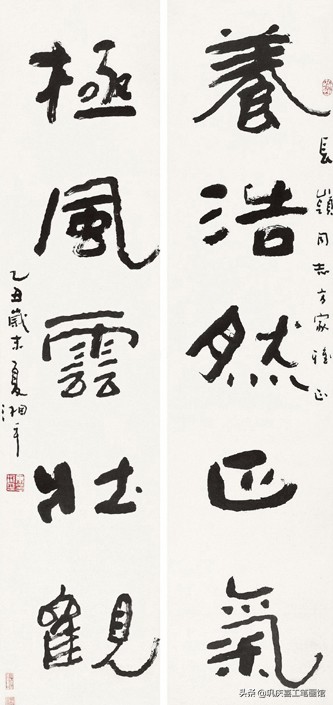 養浩然正氣
長嶺同志方家雅正
極風雲壯觀
乙丑歲末夏湘平
头条@巩庆嘉工笔画馆